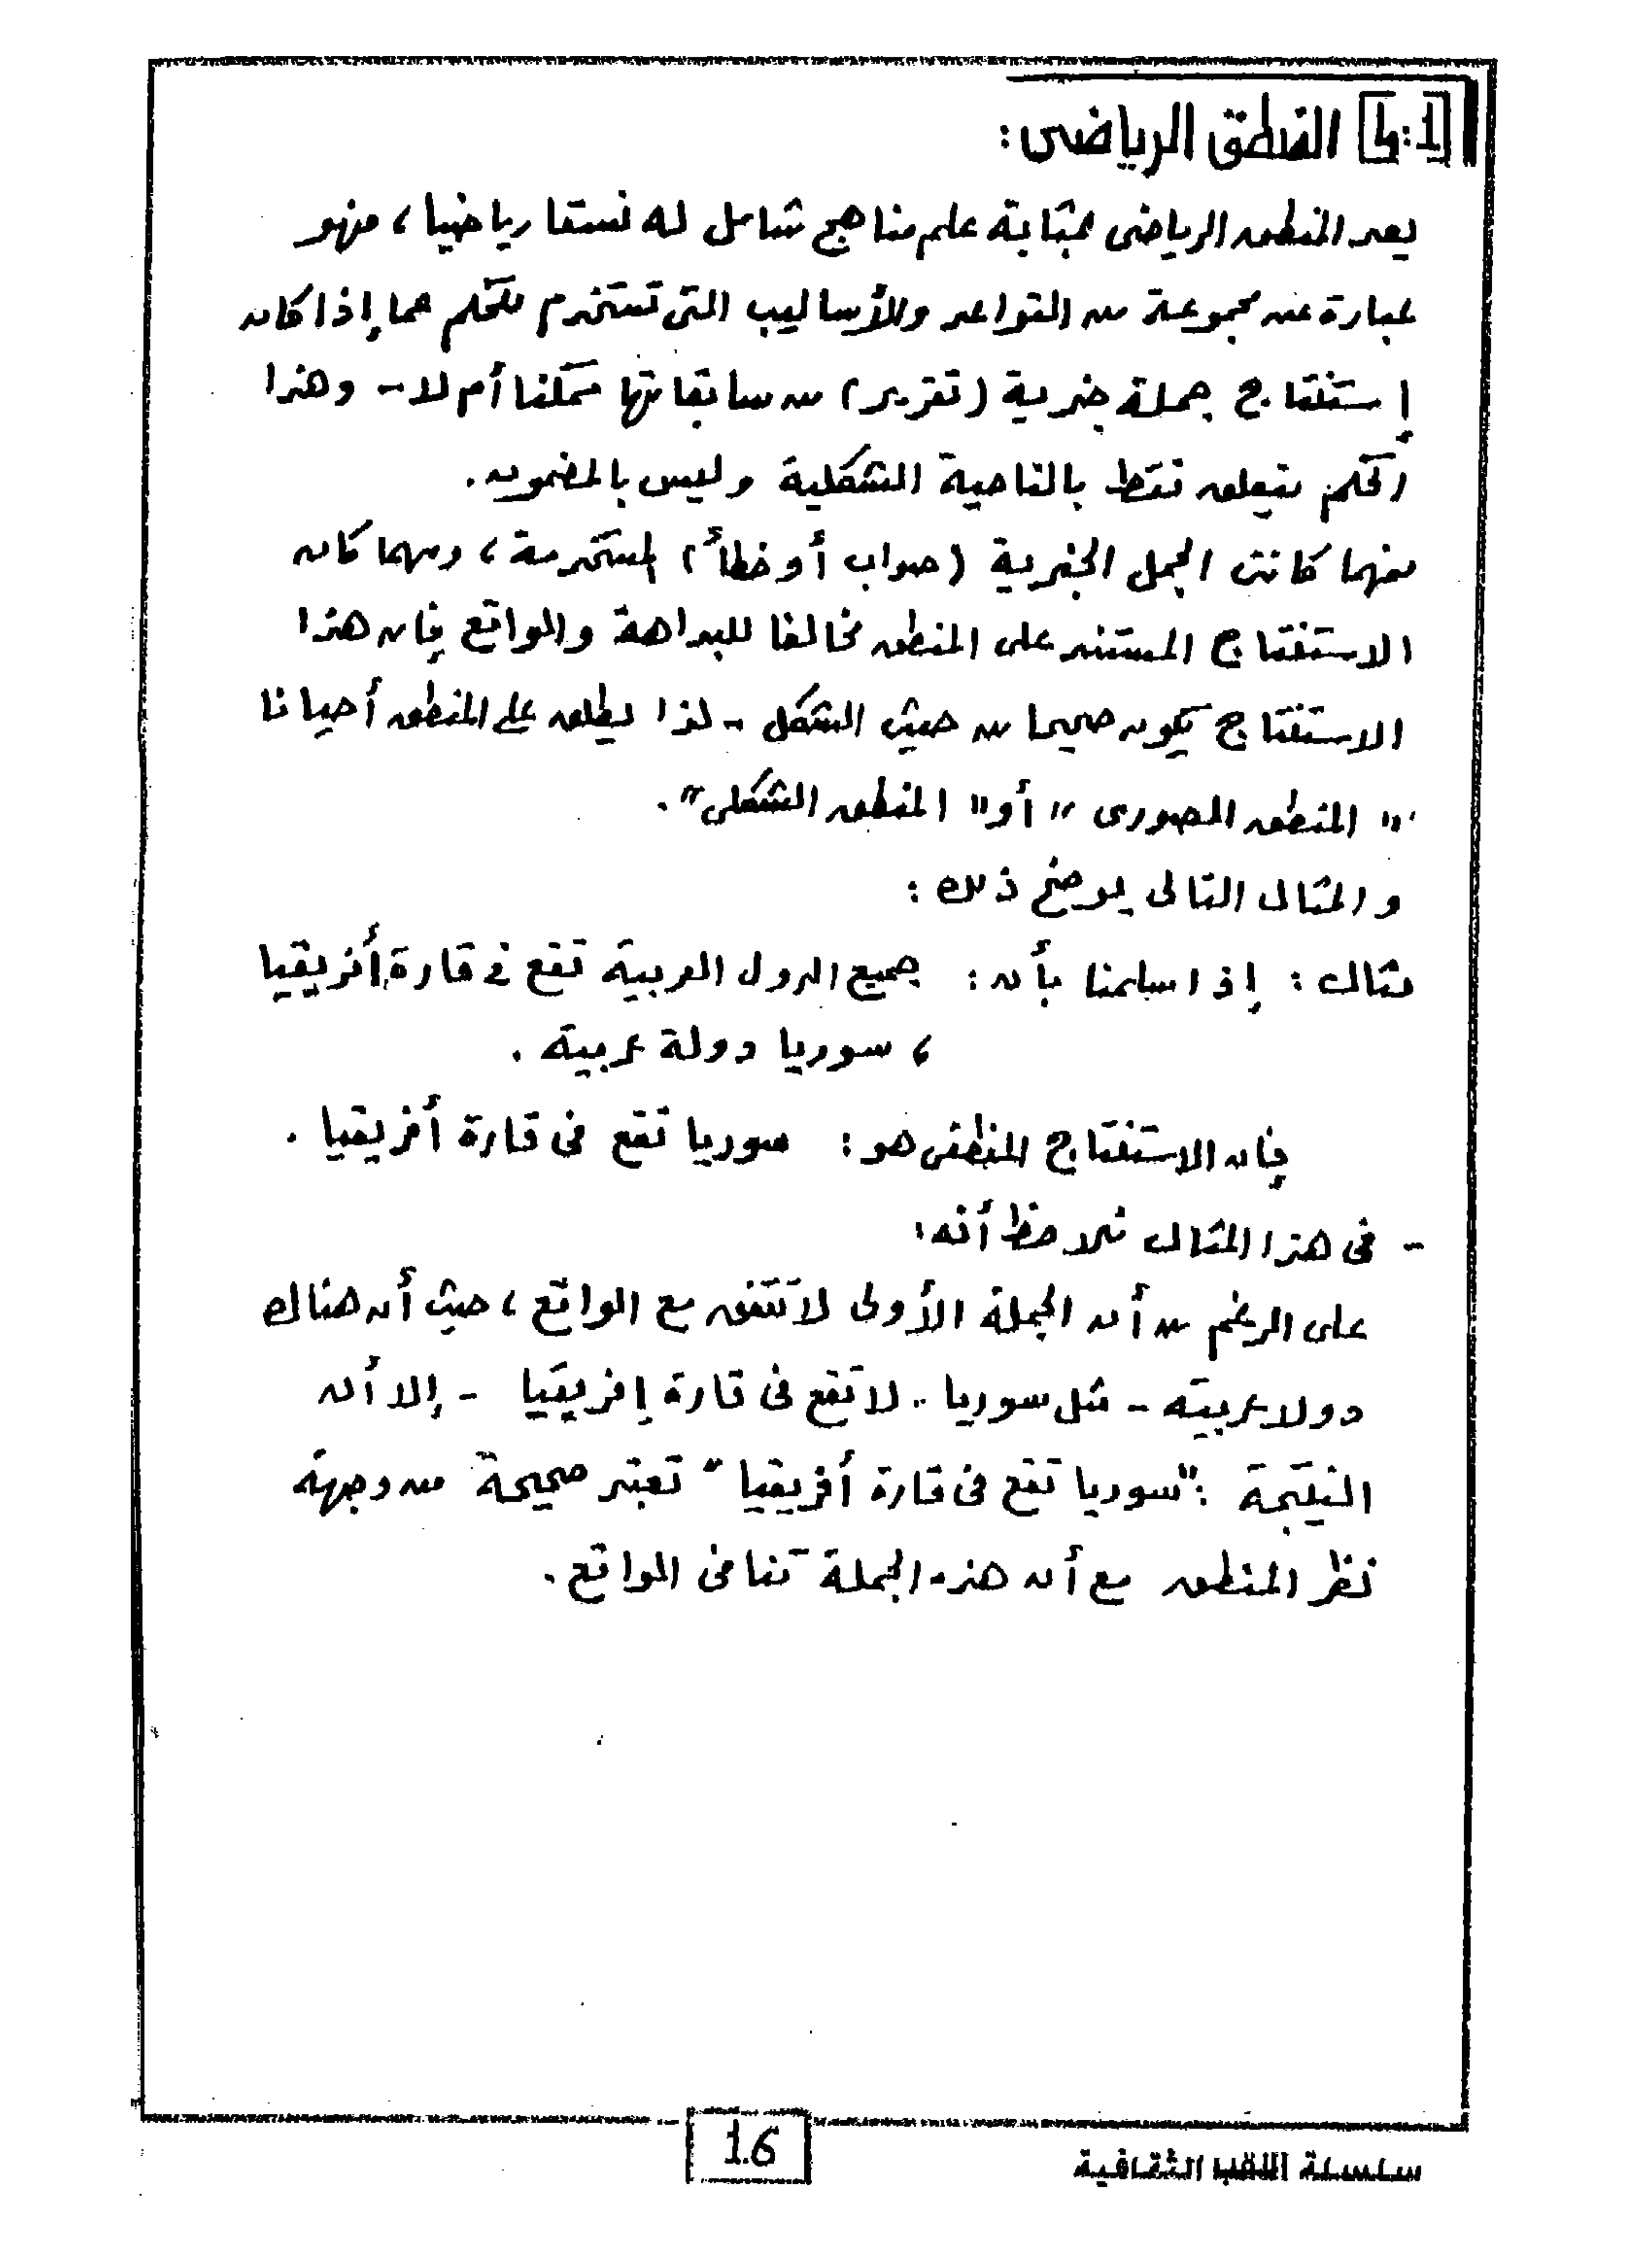 [1:4] المنطق الرياضى :
يعد المنطق الرياضى بمثابة علم مناهج شامل له نسقا رياضيا ، فهو
عبارة عن مجموعة من القواعد والأساليب التى تستخدم للحكم عما إذا كان
إستنتاج جملة خبرية (تقرير) من سابقاتها ممكنا أم لا - وهذا
الحكم يتعلق فقط بالناحية الشكلية وليس بالمضمون .
فمهما كانت الجمل الخبرية (صواب أو خطأ) المستخدمة ، ومهما كان
الاستنتاج المستند على المنطق مخالفا للبداهة والواقع فإن هذا
الاستنتاج يكون صحيحا من حيث الشكل - لذا يطلق على المنطق أحيانا
" المنطق الصورى " أو " المنطق الشكلى " .
والمثال التالى يوضح ذلك :
مثال : إذا سلمنا بأن : جميع الدول العربية تقع فى قارة أفريقيا
، سوريا دولة عربية .
فإن الاستنتاج المنطقى هو : سوريا تقع فى قارة أفريقيا .
- فى هذا المثال نلاحظ أنه :
على الرغم من أن الجملة الأولى لا تتفق مع الواقع ، حيث أن هناك
دولا عربية - مثل سوريا - لا تقع فى قارة إفريقيا - إلا أن
النتيجة : "سوريا تقع فى قارة أفريقيا " تعتبر صحيحة من وجهة
نظر المنطق مع أن هذه الجملة تنافى الواقع .
16
سلسلة الثقافية